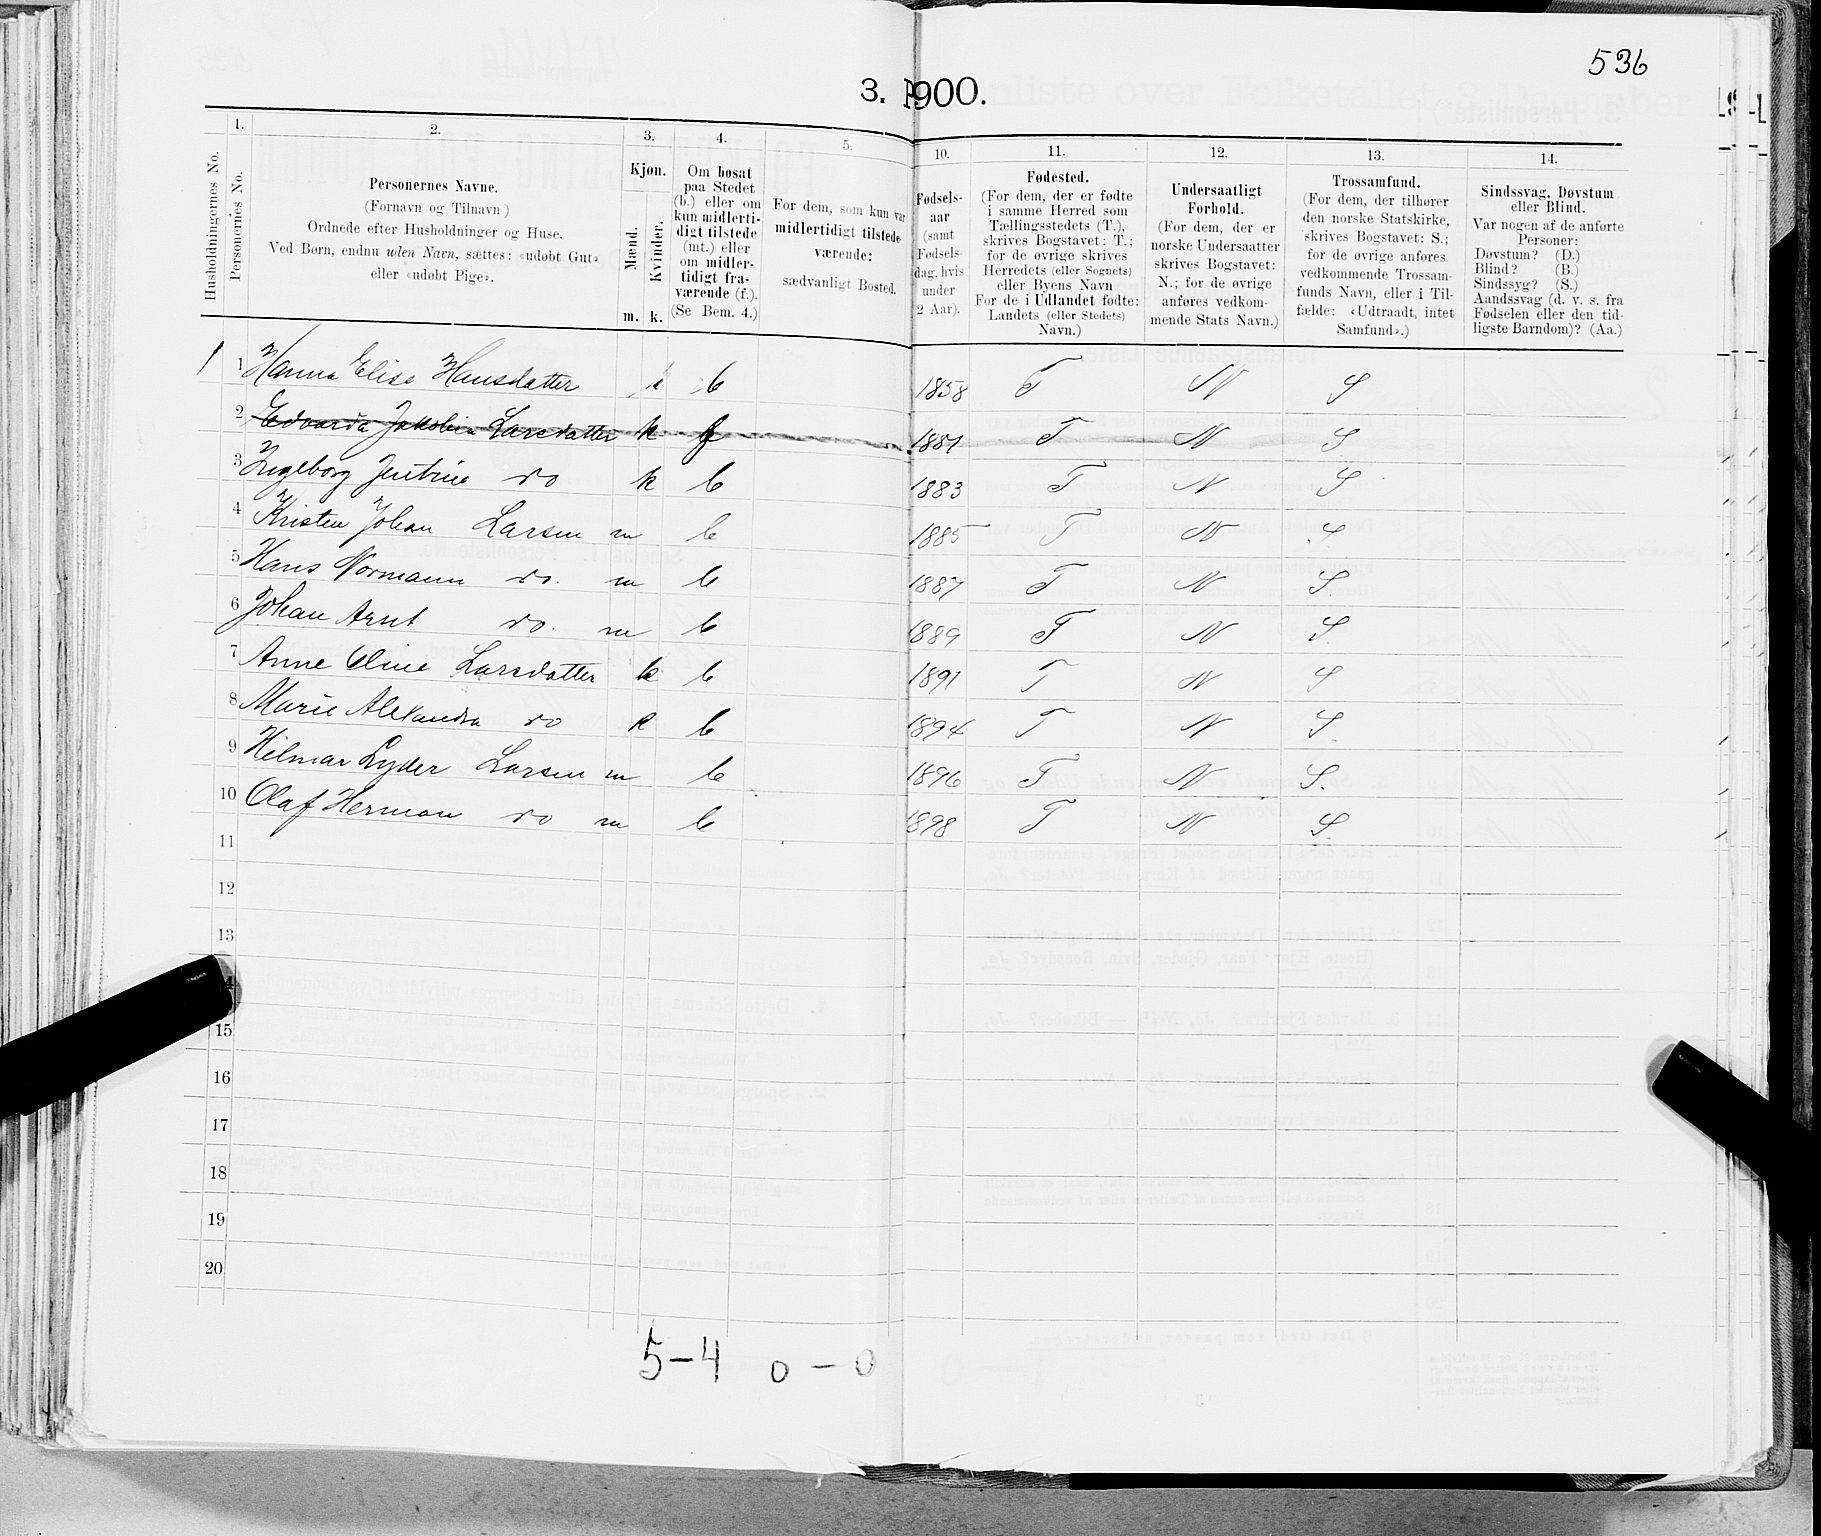 536
3. 1900.
1. 2. 3. 4. 5. 10. 11. 12. 13. 14.
Husholdningernes No.
Personernes No.
Personernes Navne.
(Fornavn og Tilnavn)
Ordnede efter Husholdninger og Huse.
Ved Børn, endnu uden Navn, sættes: «udøbt Gut»
eller «udøbt Pige».
Kjøn.
Mænd.
Kvinder.
m. k.
Om bosat
paa Stedet
(b.) eller om
kun midlerti-
digt tilstede
(mt.) eller
om midler-
tidigt fra-
værende (f.).
(Se Bem. 4.)
For dem, som kun var
midlertidigt tilstede-
værende:
sædvanligt Bosted.
Fødsels-
aar
(samt
Fødsels-
dag, hvis
under
2 Aar).
Fødested.
(For dem, der er fødte
i samme Herred som
Tællingsstedets (T.),
skrives Bogstavet: T.;
for de øvrige skrives
Herredets (eller Sognets)
eller Byens Navn
For de i Udlandet fødte:
Landets (eller Stedets)
Navn.)
Undersaatligt
Forhold.
(For dem, der er
norske Undersaatter
skrives Bogstavet:
N.; for de øvrige
anføres vedkom-
mende Stats Navn.)
Trossamfund.
(For dem, der tilhører
den norske Statskirke,
skrives Bogstavet: S.;
for de øvrige anføres
vedkommende Trossam-
funds Navn, eller i Til-
fælde: «Udtraadt, intet
Samfund».)
Sindssvag, Døvstum
eller Blind.
Var nogen af de anførte
Personer:
Døvstum? (D.)
Blind? (B.)
Sindssyg? (S.)
Aandssvag (d. v. s. fra
Fødselen eller den tid-
ligste Barndom)? (Aa.)
1 1 Hanna Elise Hansdatter k b 1858 T N S
2 Edvarda Jakobin Larsdatter k f 1881 T N S
3 Ingeborg Justine do k b 1883 T N S
4 Kristen Johan Larsen m b 1885 T N S.
5 Hans Normann do. m b 1887 T N S.
6 Johan Arnt do. m b 1889 T N S.
7 Anne Oline Larsdatter k b 1891 T N S
8 Marie Alexandra do k b 1894 T N S.
9 Hilmar Lyder Larsen m b 1896 T N S.
10 Olaf Herman do m b 1898 T N S.
11
12
13
14
15
16
17
18
19
20
5-4 0-0